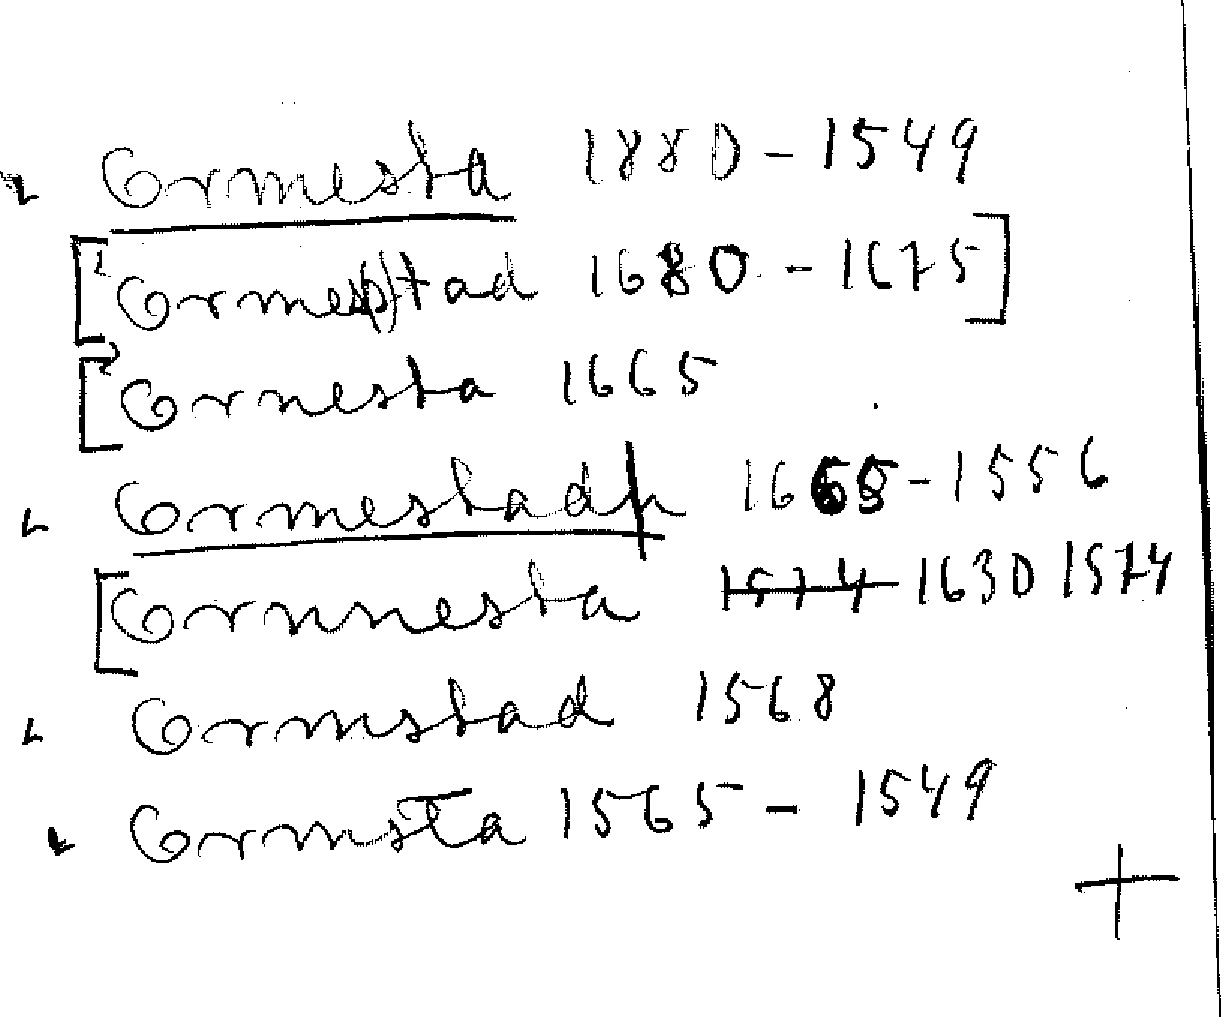 Ormesta 1880 - 1549
[Ormes(s)tad 1680 - 1675]
[Ormesta 1665
Ormestadh 1665 - 1556
[Ormnesta 1574 1630 1574
Ormstad 1568
Ormsta 1565 - 1549